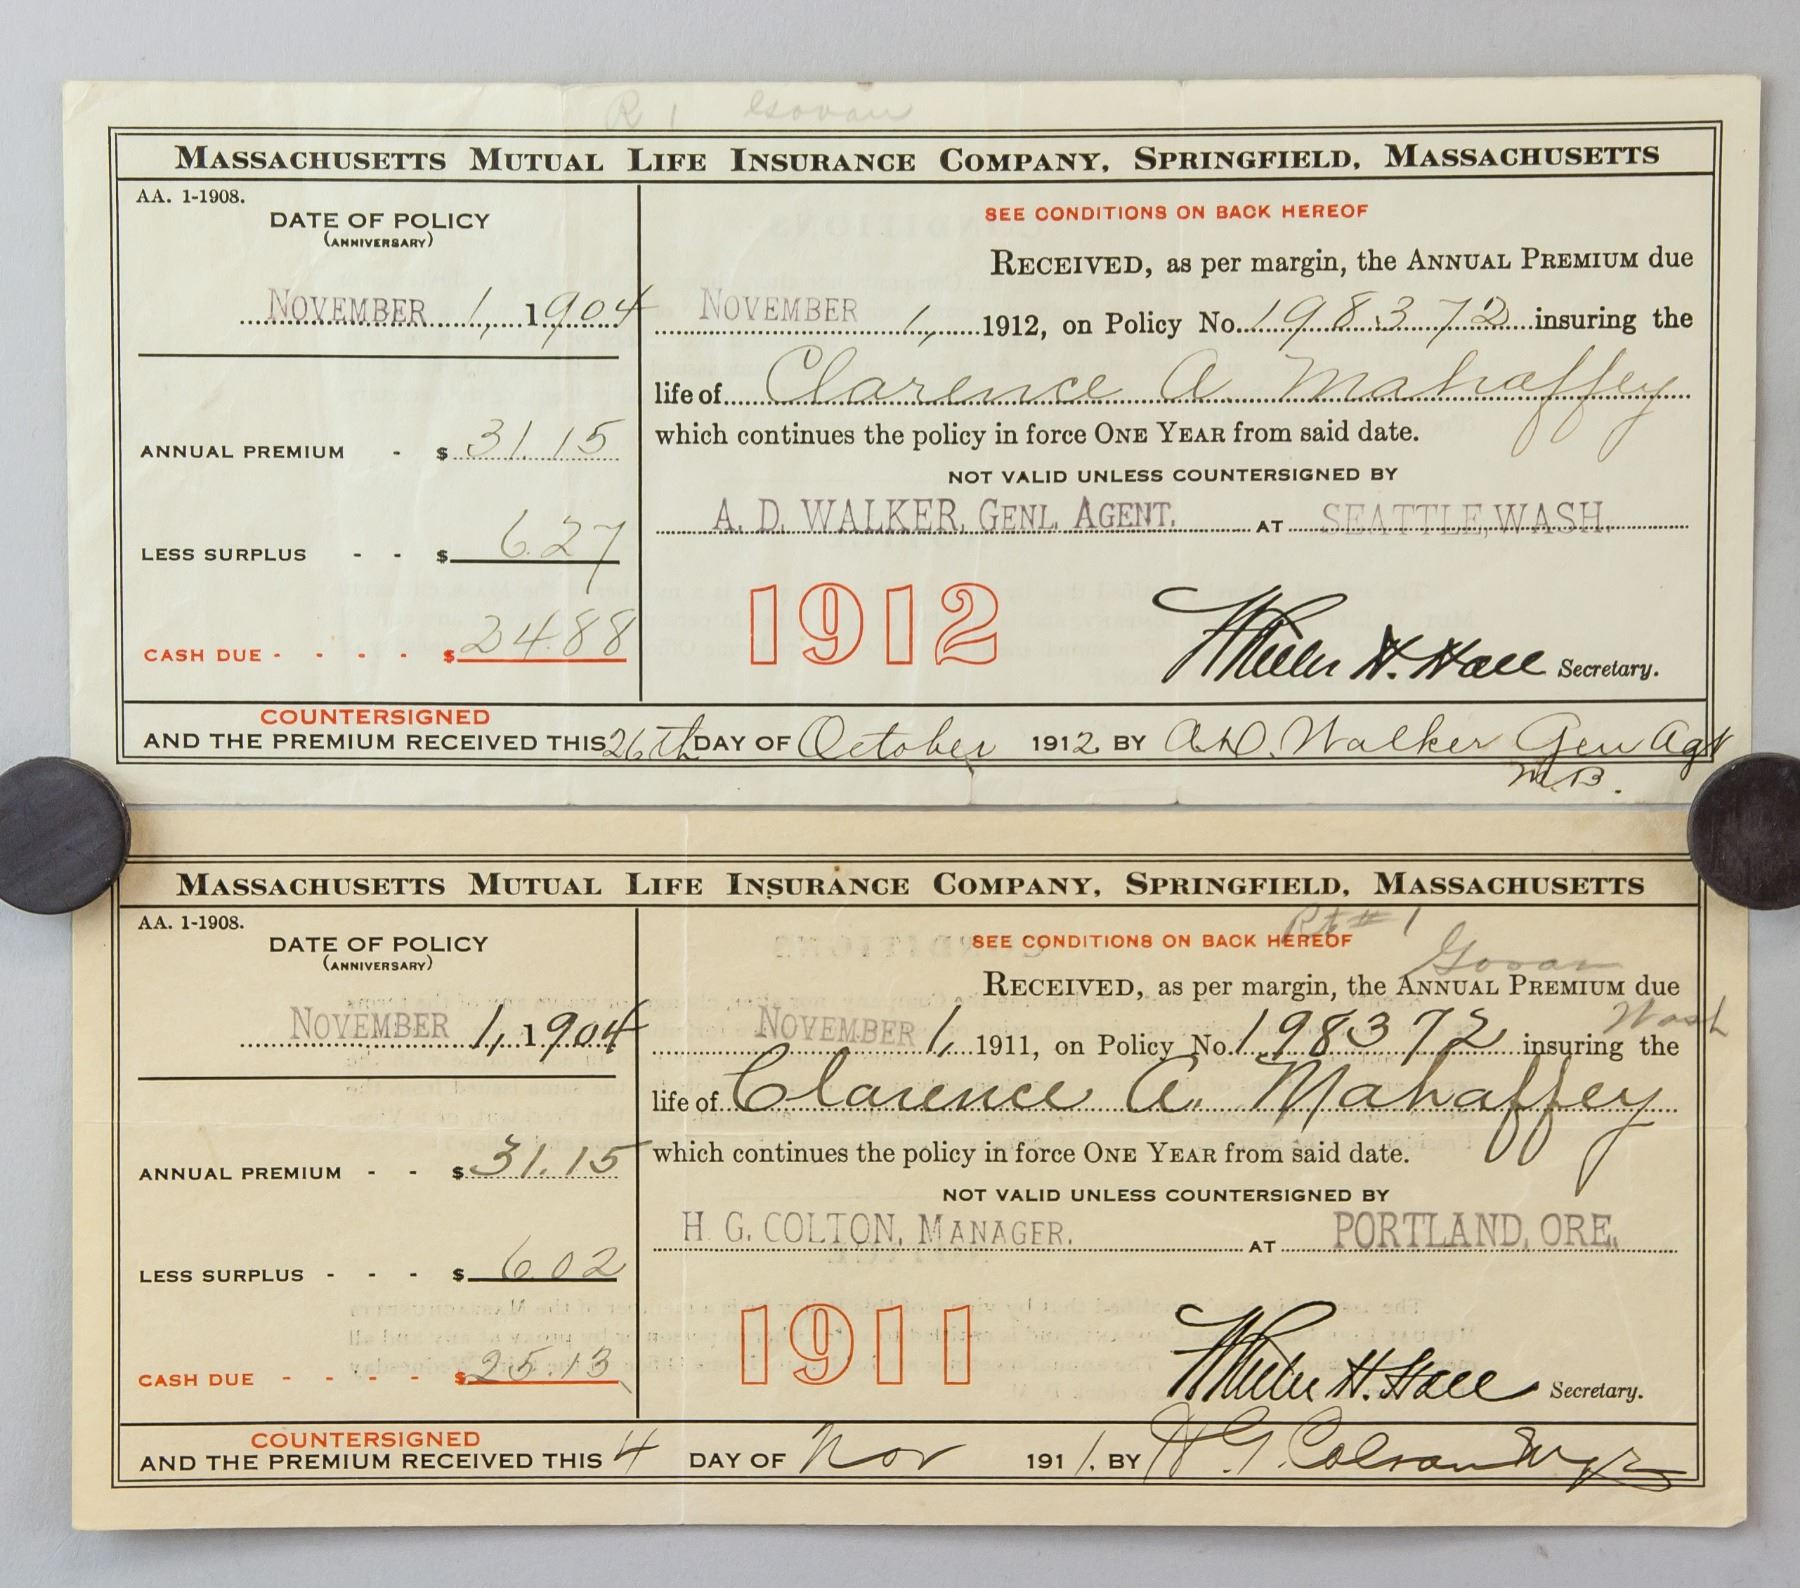 R 1 Govan
MASSACHUSETTS MUTUAL LIFE INSURANCE COMPANY, SPRINGFIELD, MASSACHUSETTS
AA. 1-1908.
DATE OF POLICY
(ANNIVERSARY)
NOVEMBER 1, 1904
ANNUAL PREMIUM - $ 31.15
LESS SURPLUS - - $ 6.27
CASH DUE - - - - $ 24.88
SEE CONDITIONS ON BACK HEREOF
RECEIVED, as per margin, the ANNUAL PREMIUM due
NOVEMBER 1, 1912, on Policy No. 198372 insuring the
life of Clarence A. Mahaffey
which continues the policy in force ONE YEAR from said date.
NOT VALID UNLESS COUNTERSIGNED BY
A. D. WALKER, GENL. AGENT. AT SEATTLE, WASH.
1912
Wheeler H. Hall Secretary.
COUNTERSIGNED
AND THE PREMIUM RECEIVED THIS 26th DAY OF October 1912 BY A.D. Walker Gen Agt
M.B.
MASSACHUSETTS MUTUAL LIFE INSURANCE COMPANY, SPRINGFIELD, MASSACHUSETTS
AA. 1-1908.
DATE OF POLICY
(ANNIVERSARY)
NOVEMBER 1, 1904
ANNUAL PREMIUM - - $ 31.15
LESS SURPLUS - - - $ 6.02
CASH DUE - - - - $ 25.13
Rt # 1
SEE CONDITIONS ON BACK HEREOF
Govan
RECEIVED, as per margin, the ANNUAL PREMIUM due
Wash
NOVEMBER 1, 1911, on Policy No. 198372 insuring the
life of Clarence A. Mahaffey
which continues the policy in force ONE YEAR from said date.
NOT VALID UNLESS COUNTERSIGNED BY
H. G. COLTON, MANAGER. AT PORTLAND, ORE.
1911
Wheeler H. Hall Secretary.
COUNTERSIGNED
AND THE PREMIUM RECEIVED THIS 4 DAY OF Nov 1911. BY H. G. Colton